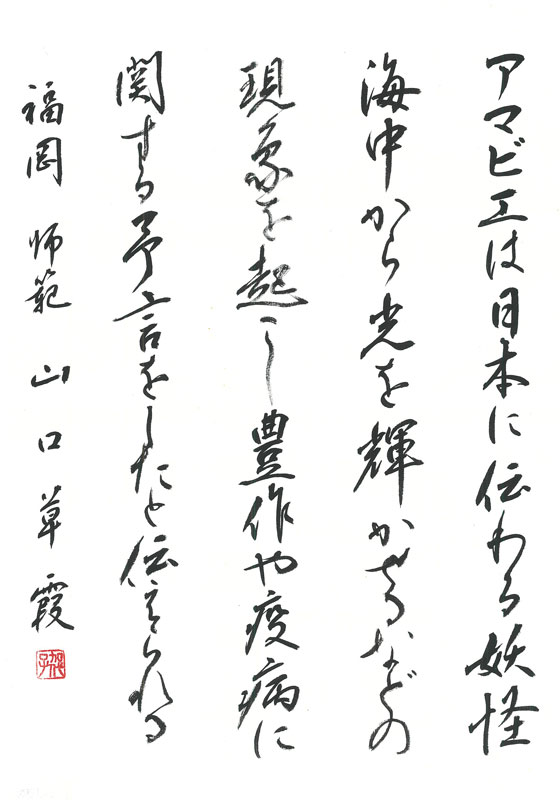 アマビエは日本に伝わる妖怪
海中から光を輝かせるなどの
現象を起こし豊作や疫病に
関する予言をしたと伝えられる
福岡 師範 山口草霞